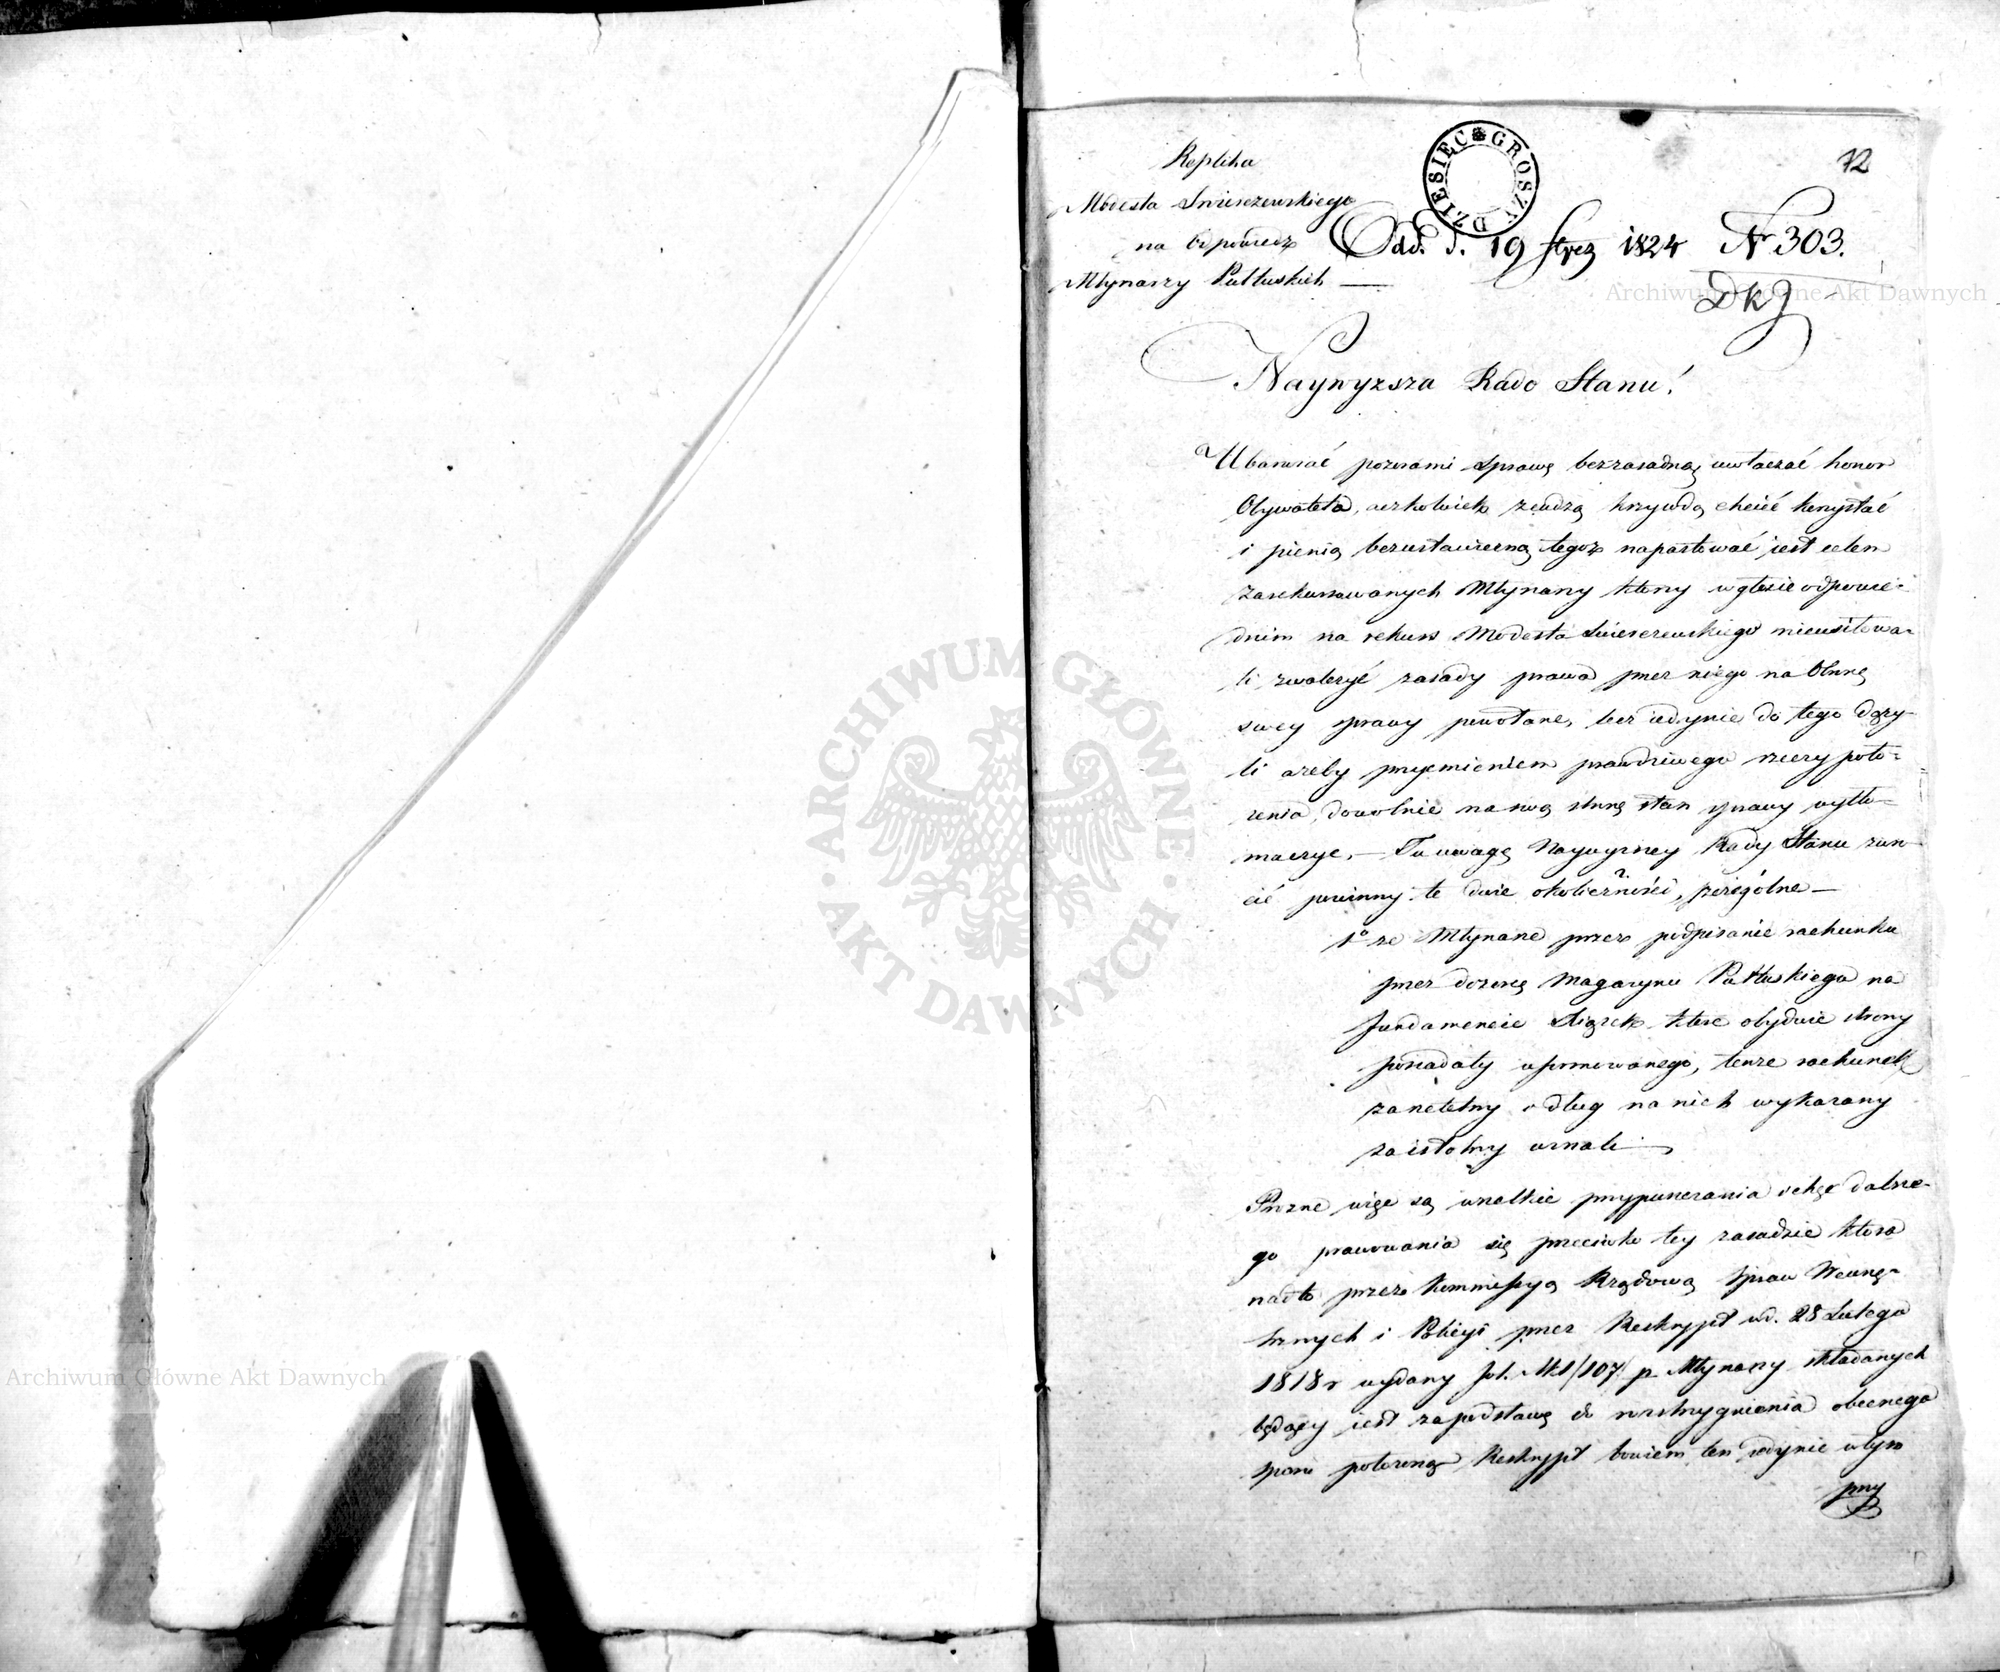 72
Replika
Modesta Swieszewskiego
na odpowiedz
Młynarzy Pułtuskich —
DZIESIĘC GROSZY
Odd. d. 19 1824 N 303.
DkJ
Naywyzsza Rado Stanu!
Ubarwiać pozorami sprawę bezzasadną, uwłaczać honor
Obywatela, aczkolwiek z cudzą krzywdą chcieć korzystać
i pienią bezustanną tegoż napastować jest celem
zarekursowanych Młynarzy ktorzy w głosie odpowie-
dnim na rekurs Modesta Swieszewskiego nieusiłowa-
li zwalczyć zasady prawa przez niego na Obronę
swey sprawy powołane, lecz iedynie do tego dązy-
li azeby przyemieniem prawdziwego rzeczy poło-
zenia, dowolnie na swą stronę stan sprawy wytło-
maczyc. — Tu uwagę Naywyzszey Rady Stanu zwró-
cić powinny te dwie okoliczności, szczególne —
1° ze Młynarze przez podpisanie rachunku
przez dozorcę Magazynu Pułtuskiego na
fundamencie Xiążek ktore obydwie strony
posiadały uformowanego, tenze rachunek
za rzetelny a dług na nich wykazany
za istotny uznali —
Prozne więc są wszelkie przypuszczania i chęć dalsze-
go prawowania się przeciwko tey zasadzie ktora
nadto przez Kommissyą Rządową Spraw Wewnę-
trznych i Policyi przez Reskrypt w d. 28 Lutego
1818 r wydany fol. 107 p Młynarzy składanych
będący iest za podstawę do rozstrzygnienia obecnego
sporu połozoną Reskrypt bowiem ten iedynie w tym
przy
ARCHIWUM GŁÓWNE AKT DAWNYCH
Archiwum Główne Akt Dawnych
Archiwum Główne Akt Dawnych